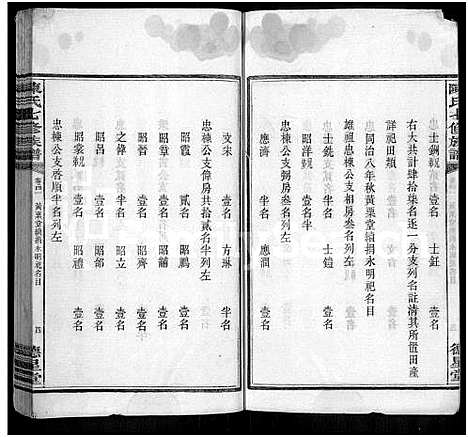 陳氏七修族譜
士鋼覲 壹名 士鈺 壹名
右大共計肆拾柒名逐一分支列名註清其所置田產
詳祀田類
同治八年秋黃粟堂續捐永明祀名目
雄祖忠棟公支相房叁名列左
士銓 壹名 士鎧 壹名
昭洋覲 壹名
忠棟公支弼房叁名列左
應詔 壹名 應潤 壹名
德星堂
文宋 壹名 方琳 半名
忠棟公支偉房共拾貳名半列左
昭晉 壹名
昭棠 貳名 昭鵬 壹名
昭賀覲 壹名 昭齊 壹名
之偉 壹名 昭立 壹名
昭昌 壹名 昭郃 壹名
昭裳覲 壹名 昭禮 壹名
忠棟公支啓順半名列左
陳氏七修族譜
黃粟堂續捐永明祀名目
四
德星堂